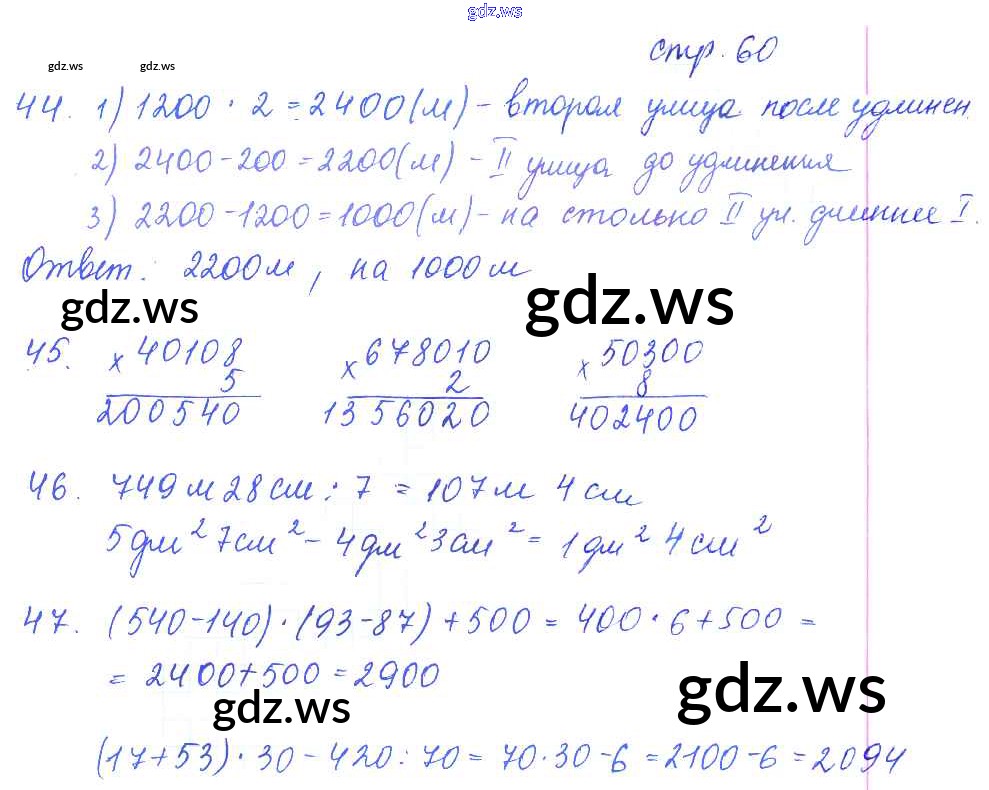 gdz.ws
стр. 60
gdz.ws gdz.ws
44. 1) 1200 · 2 = 2400 (м) - вторая улица после удлинен.
2) 2400 - 200 = 2200 (м) - II улица до удлинения
3) 2200 - 1200 = 1000 (м) - на столько II ул. длиннее I.
Ответ: 2200 м, на 1000 м
gdz.ws gdz.ws
45. × 40108 × 678010 × 50300
5 2 8
200540 1356020 402400
46. 749 м 28 см : 7 = 107 м 4 см
5 дм² 7 см² - 4 дм² 3 см² = 1 дм² 4 см²
47. (540 - 140) · (93 - 87) + 500 = 400 · 6 + 500 =
= 2400 + 500 = 2900
gdz.ws gdz.ws
(17 + 53) · 30 - 420 : 70 = 70 · 30 - 6 = 2100 - 6 = 2094